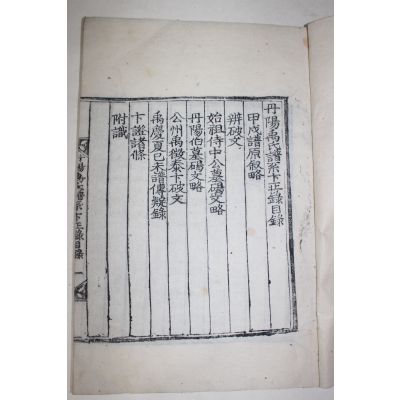 丹陽禹氏譜系卞正錄目錄
甲戌譜原敘略
辨破文
始祖侍中公墓碣文略
丹陽伯墓碣文略
公州禹徵泰卞破文
禹慶夏己未譜傳疑錄
卞證諸條
附識
丹陽禹氏譜系卞正錄目錄 一